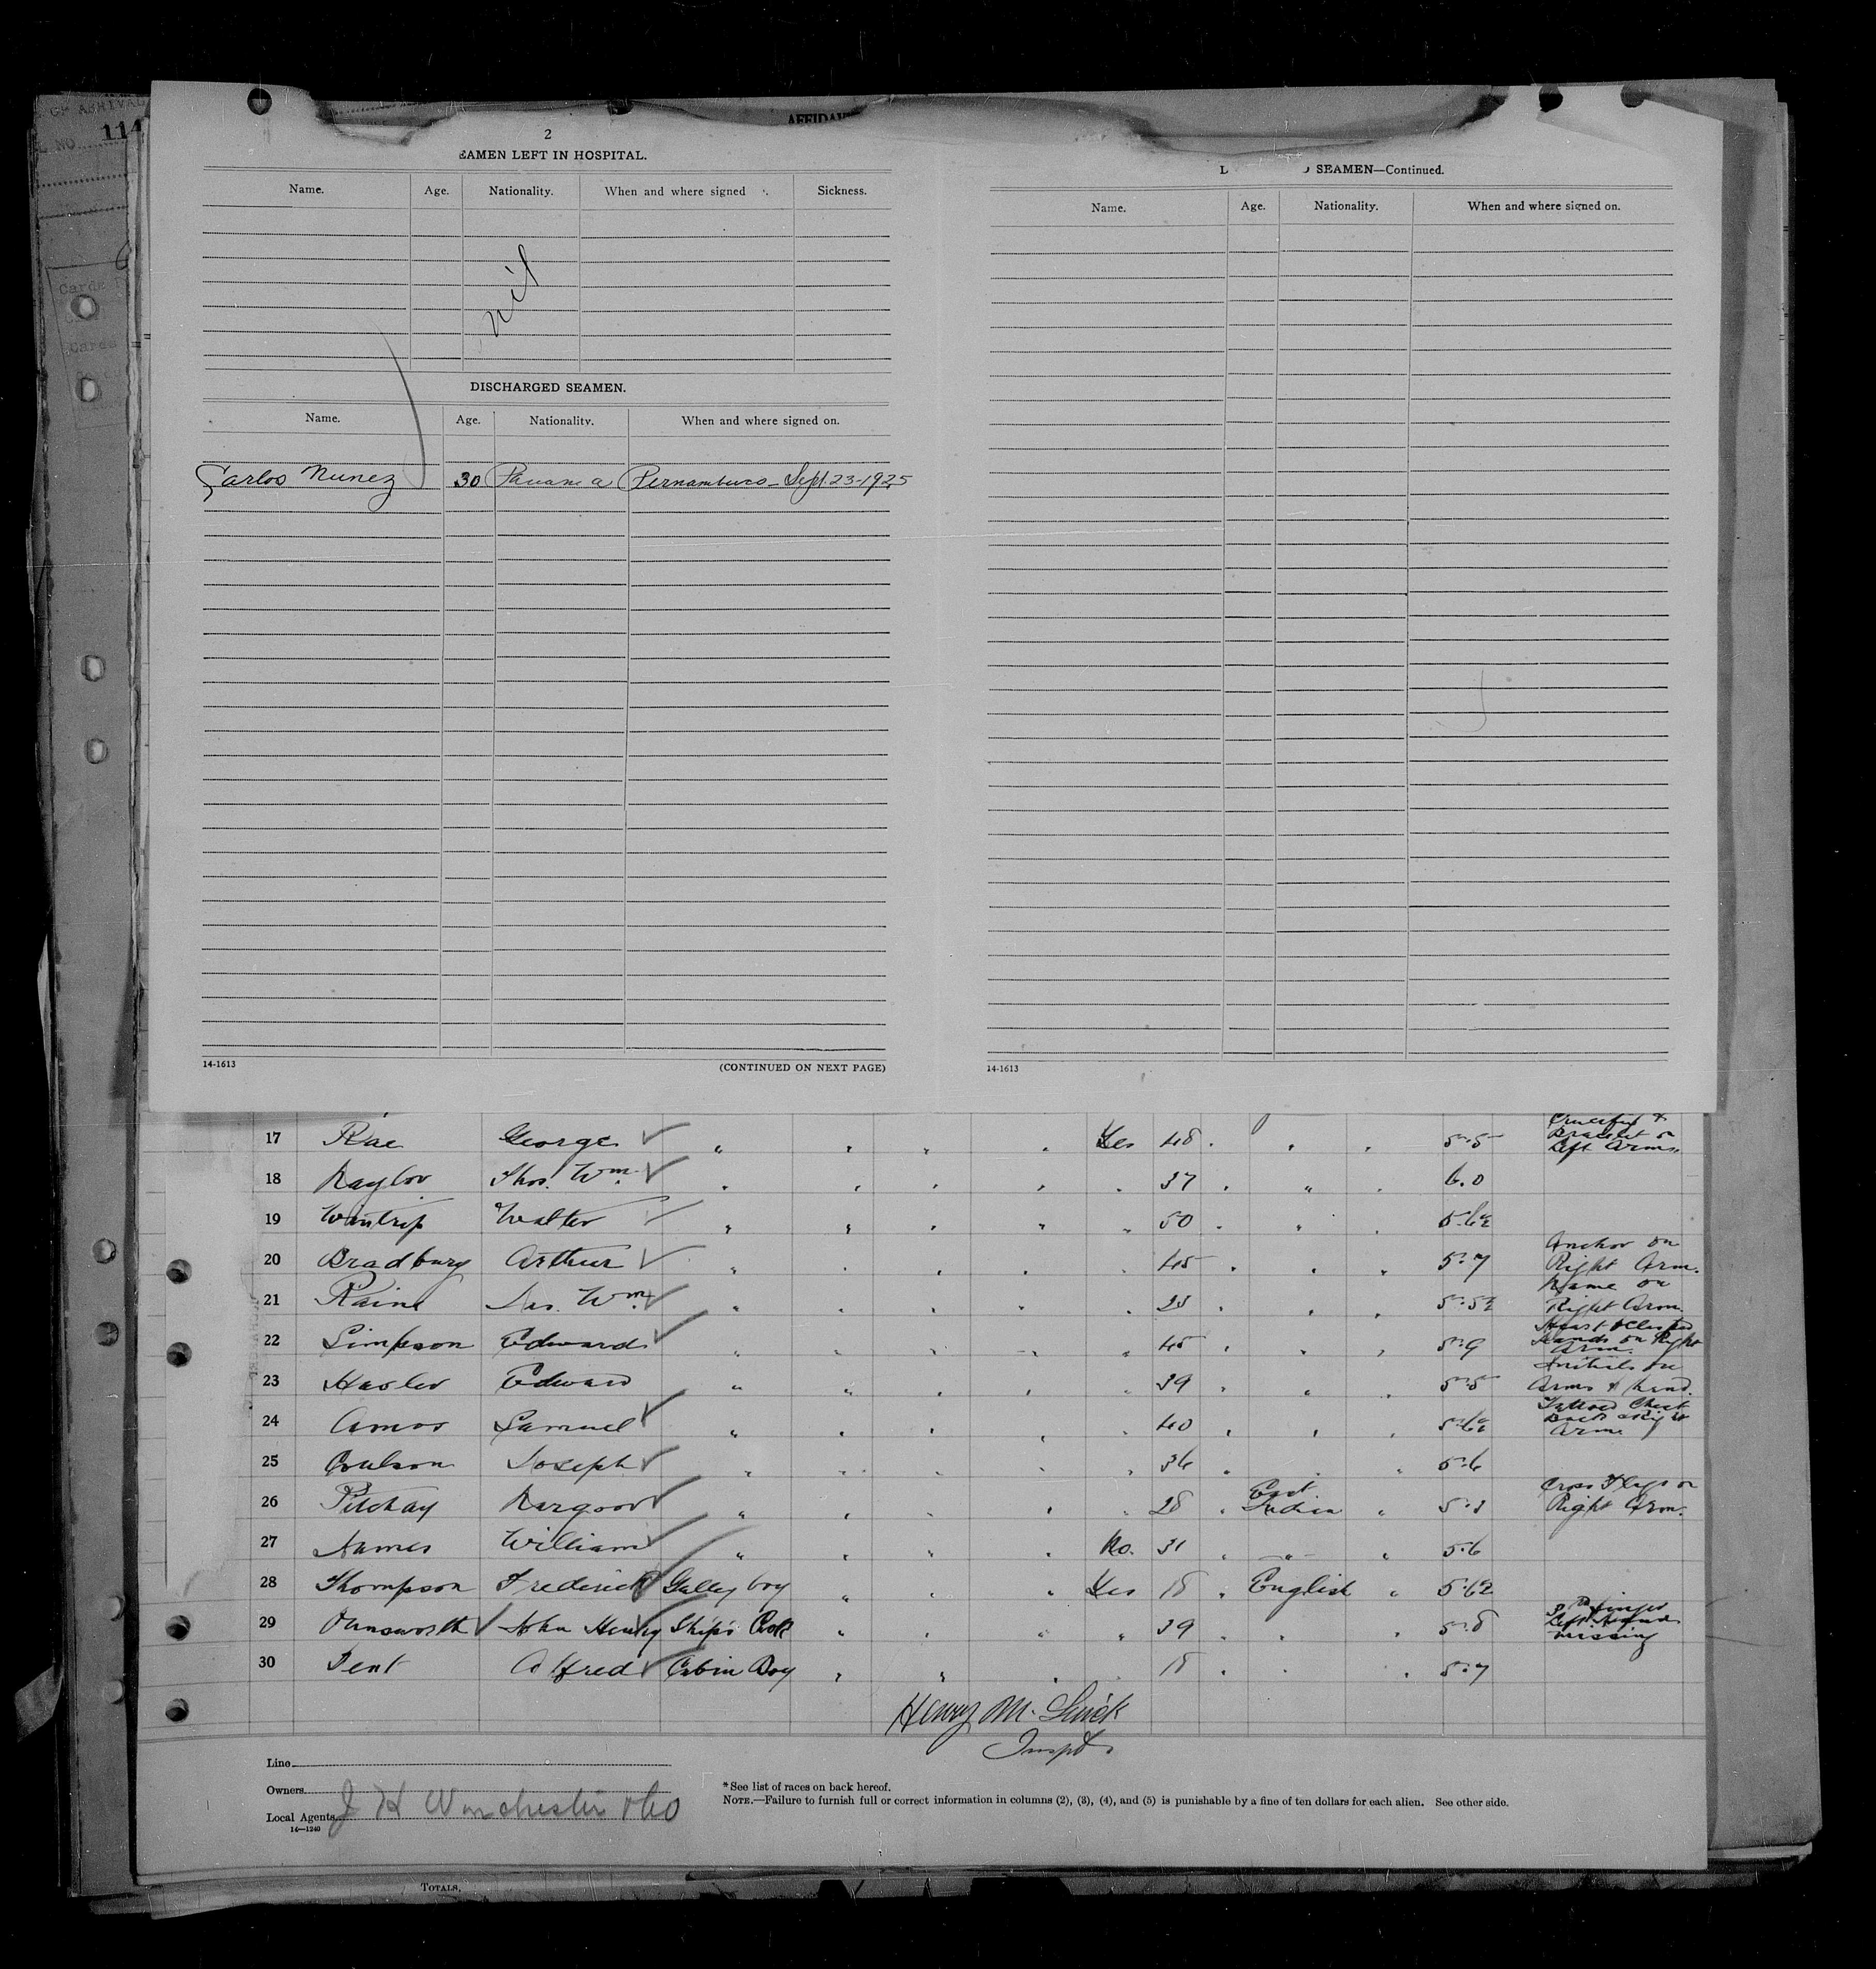 OF ARRIVAL
114
NO
AFFIDAV
Cards
Cards
2
EAMEN LEFT IN HOSPITAL.
Name. Age. Nationality. When and where signed Sickness.
nil
DISCHARGED SEAMEN.
Name. Age. Nationality. When and where signed on.
Carlos Nunez 30 Panama Pernambuco - Sept 23-1925
14-1613 (CONTINUED ON NEXT PAGE)
SEAMEN—Continued.
Name. Age. Nationality. When and where signed on.
14-1613
17 Rae George " " " " Yes 48 " " " 5-5 Crucifix & Bracelet on Left Arm.
18 Naylor Thos. Wm. " " " " " 37 " " " 6.0
19 Wintrip Walter " " " " " 50 " " " 5-6½
20 Bradbury Arthur " " " " " 45 " " " 5-7 Anchor on Right Arm.
21 Raine Jas. Wm. " " " " " " " " 5-5½ Name on Right Arm.
22 Simpson Edward " " " " " 45 " " " 5-9 Heart & Clasped Hands on Right Arm.
23 Edward " " " " " 39 " " " 5-5 Initials on Arms & hand.
24 Amos Samuel " " " " " 40 " " " 5-6½ Tattooed Chest Back & Right Arm
25 Coulson Joseph " " " " " 36 " " " 5-6
26 Pitchay " " " " " 28 " East Indian " Cross Flags on Right Arm.
27 James William " " " " No. 31 " " " 5-6
28 Thompson Frederick Galley boy " " " Yes 18 " English " 5-6½
29 John Henry Ship's Cook " " " " 39 " " " 5-8 finger Left Hand missing
30 Tent Alfred Cabin Boy " " " " 18 " " " 5-7
Henry M.
Inspt.
Line
Owners
Local Agents J H Winchester & Co
14—1240
*See list of races on back hereof.
NOTE.—Failure to furnish full or correct information in columns (2), (3), (4), and (5) is punishable by a fine of ten dollars for each alien. See other side.
TOTALS,